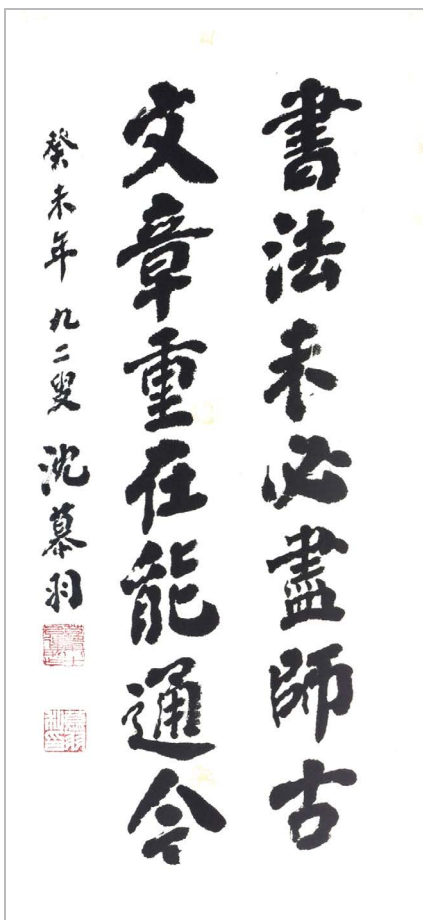 書法未必盡師古
文章重在能通今
癸未年 九二叟 沈慕羽